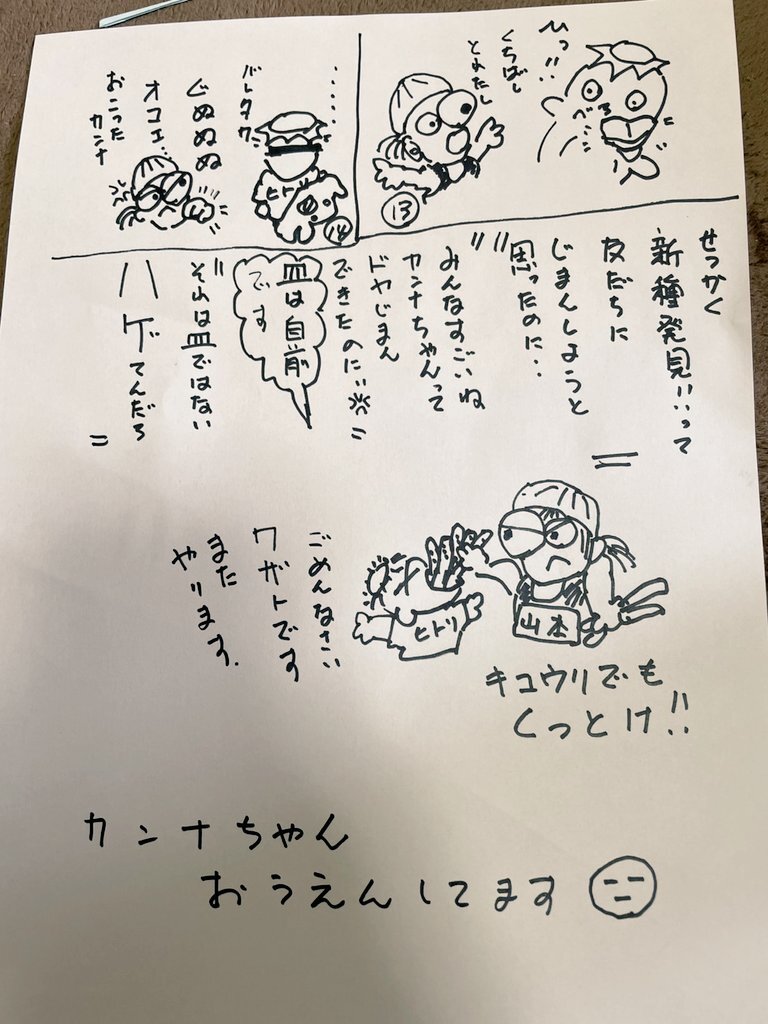 ひっ!!
べろ
くちばし
とれたし
13
‥‥‥
バレタカ
ヒトリ
14
ぐぬぬぬ
オコエ…
おこった
カンナ
せっかく
新種発見!!って
友だちに
じまんしようと
思ったのに‥
"みんなすごいね
カンナちゃんって"
ドヤじまん
できたのに!!
皿は自前
です
"それは皿ではない
ハゲてんだろ"
山本
ヒトリ
キュウリでも
くっとけ!!
ごめんなさい
ワザトです
また
やります.
カンナちゃん
おうえんしてます